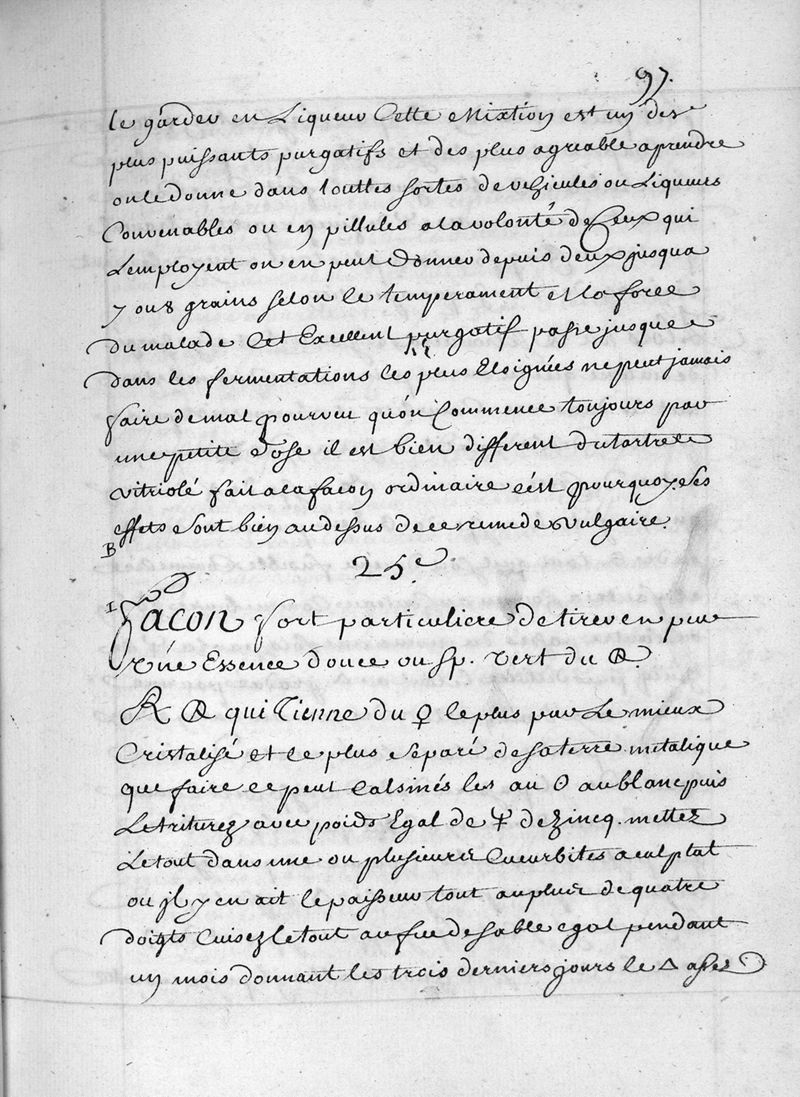 97.
le garder en Liqueur Cette Mixtion est un des
plus puissants purgatifs et des plus agreable a prendre
on le donne dans touttes sortes de vehicules ou Liqueurs
Convenables ou en pillules a la volonté de Ceux qui
L'employent on en peut donner depuis deux jusqua
7 ou 8 grains selon le temperament et la force
du malade Cet Excellent purgatif passe jusque
dans les fermentations les plus Eloignées ne peut jamais
faire de mal pourveu qu'on Commence toujours par
une petite dose il est bien different du tartre
vitriolé fait a la facon ordinaire c'est pourquoy ses
effets sont bien au dessus de ce remede vulgaire.
B
25.e
I
facon fort particuliere de tirer en peu
Une Essence douce ou sp. Vert du
qui Tienne du ♀ le plus pur Le mieux
Cristalisé et le plus separé de sa terre metalique
que faire ce peut Calsinés les au blanc puis
Le triturez avec poids Egal de de Zincq. mettez
Le tout dans une ou plusieurs Cucurbites a cul plat
ou il y en ait lepaisseur tout au plus de quatre
doigts Cuisez le tout au feu de sable egal pendant
un mois donnant les trois derniers jours le △ assez